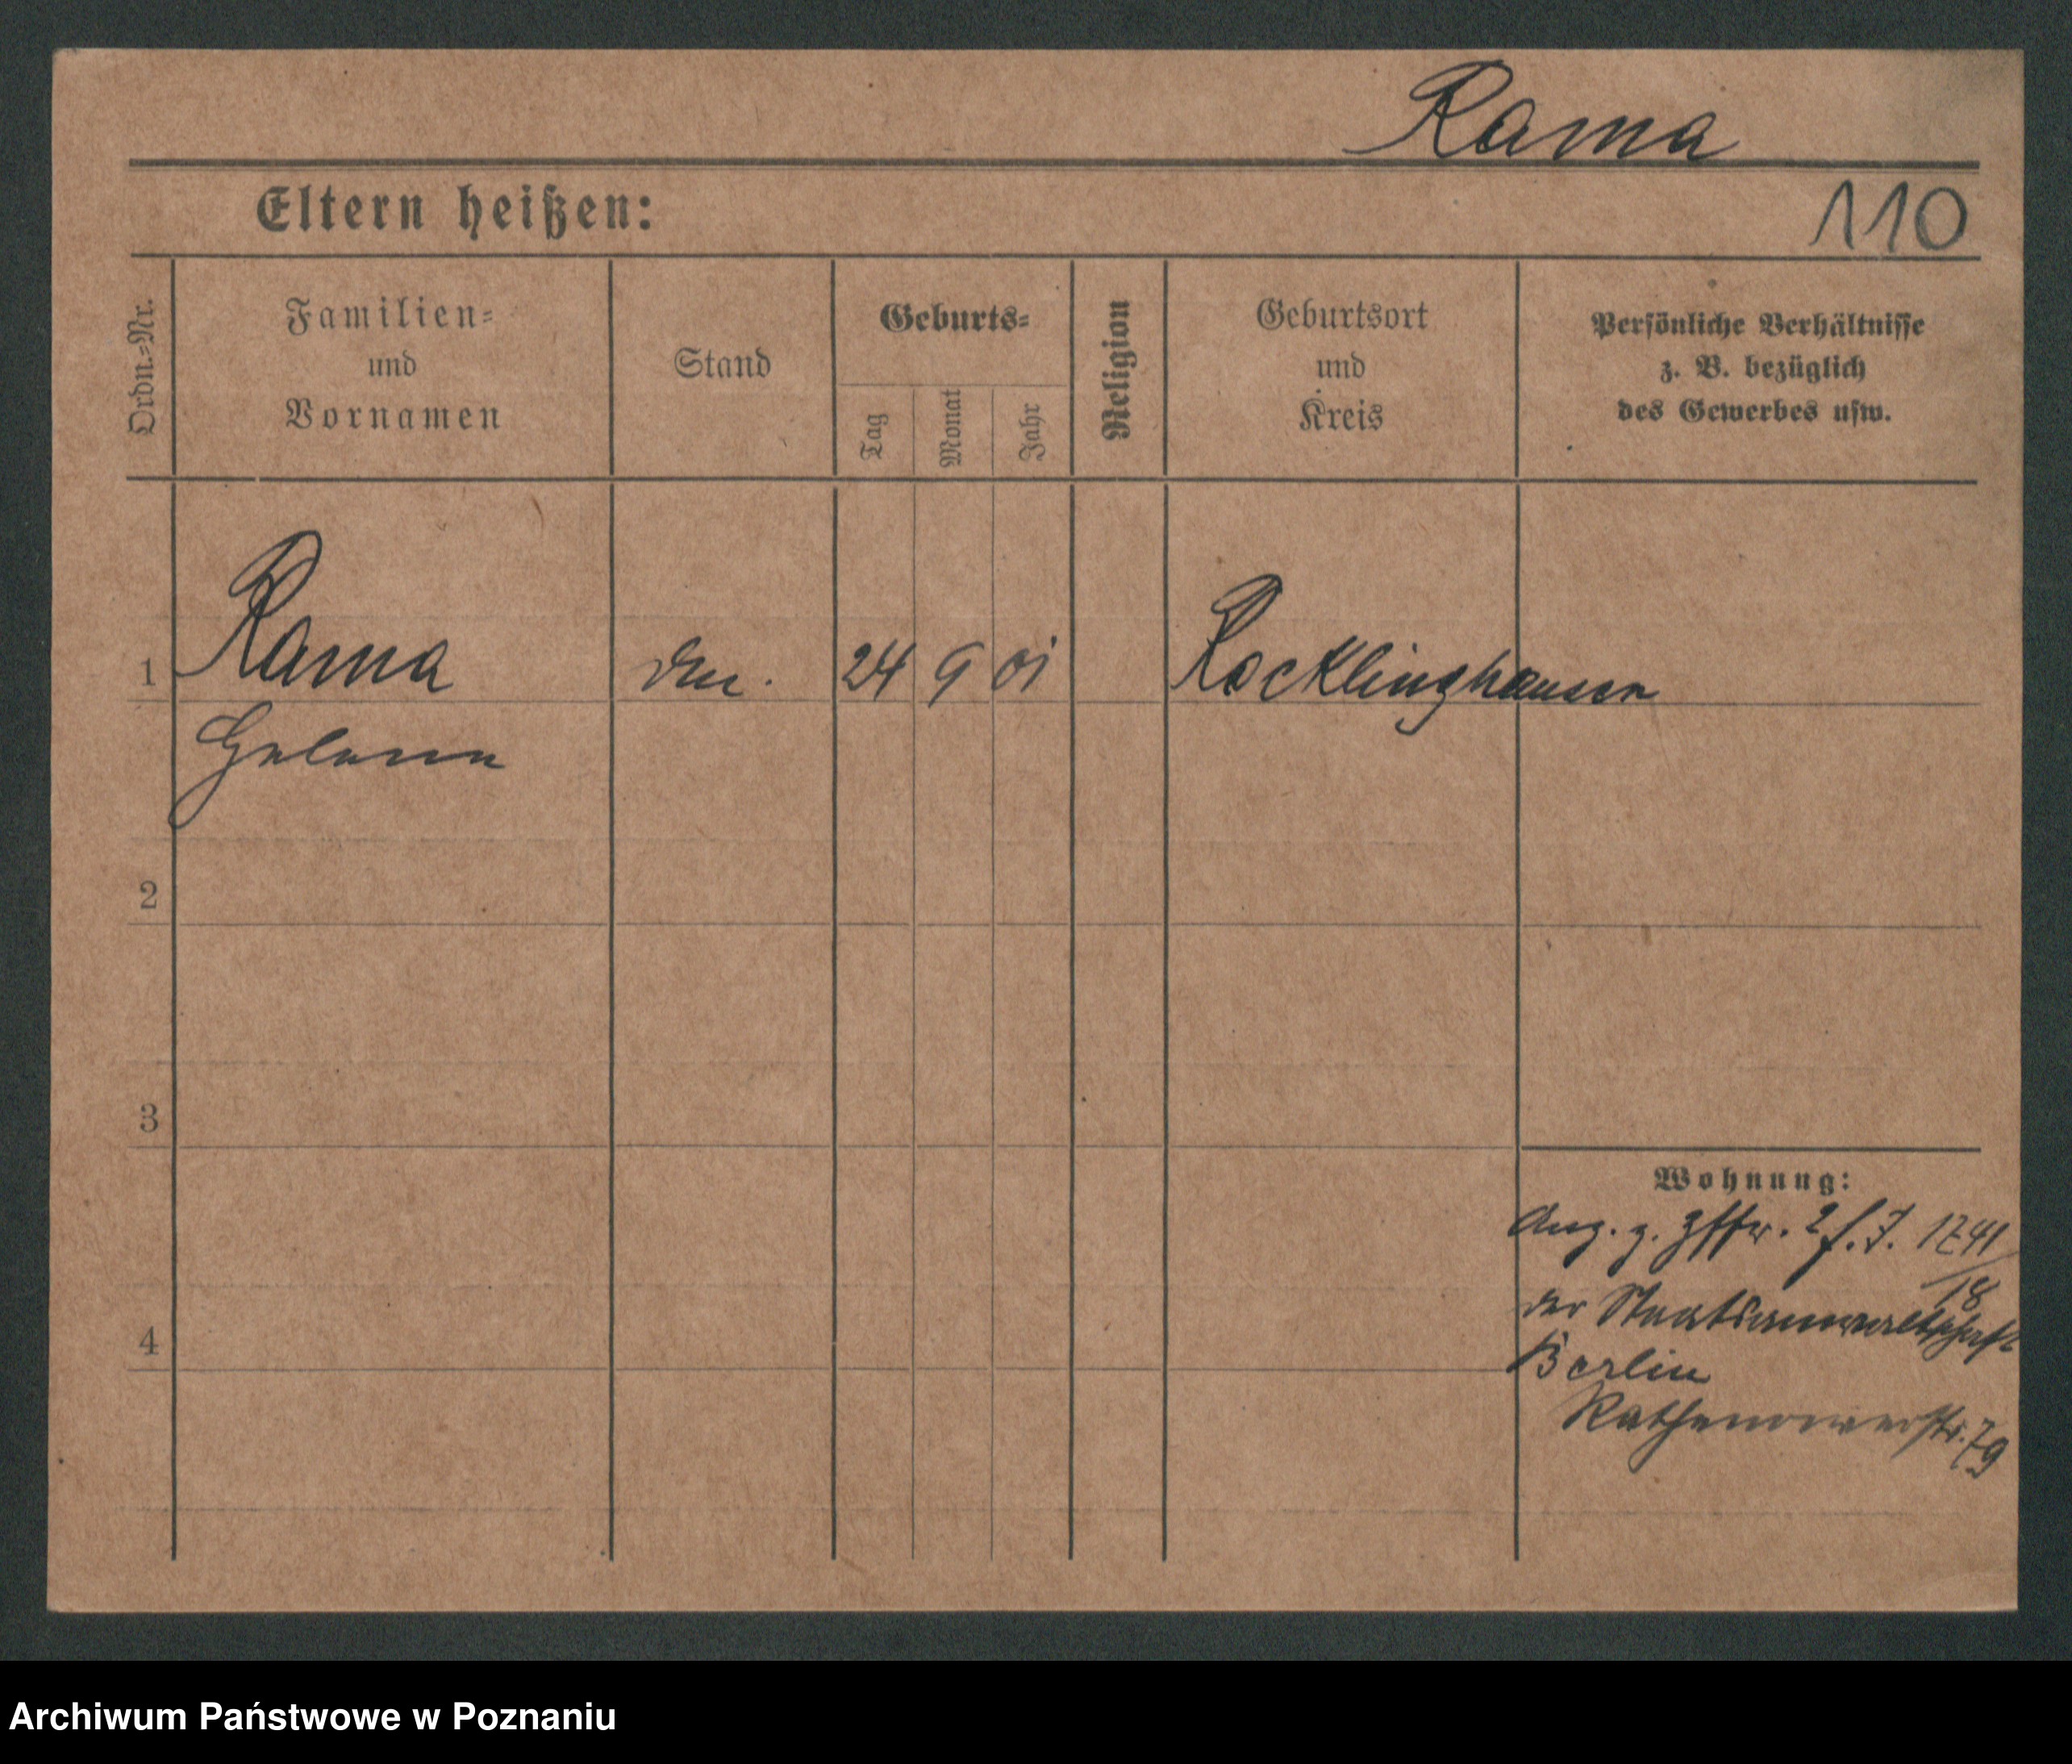 Rama
Eltern heißen:
110
Ordn.-Nr.
Familien-
und
Vornamen
Stand
Geburts-
Tag
Monat
Jahr
Religion
Geburtsort
und
Kreis
Persönliche Verhältnisse
z. B. bezüglich
des Gewerbes usw.
1
Rama
24 9 01
Recklinghausen
Helene
2
3
4
Wohnung:
der Staatsanwaltschaft
Berlin
Rathenowerstr. 79
Archiwum Państwowe w Poznaniu